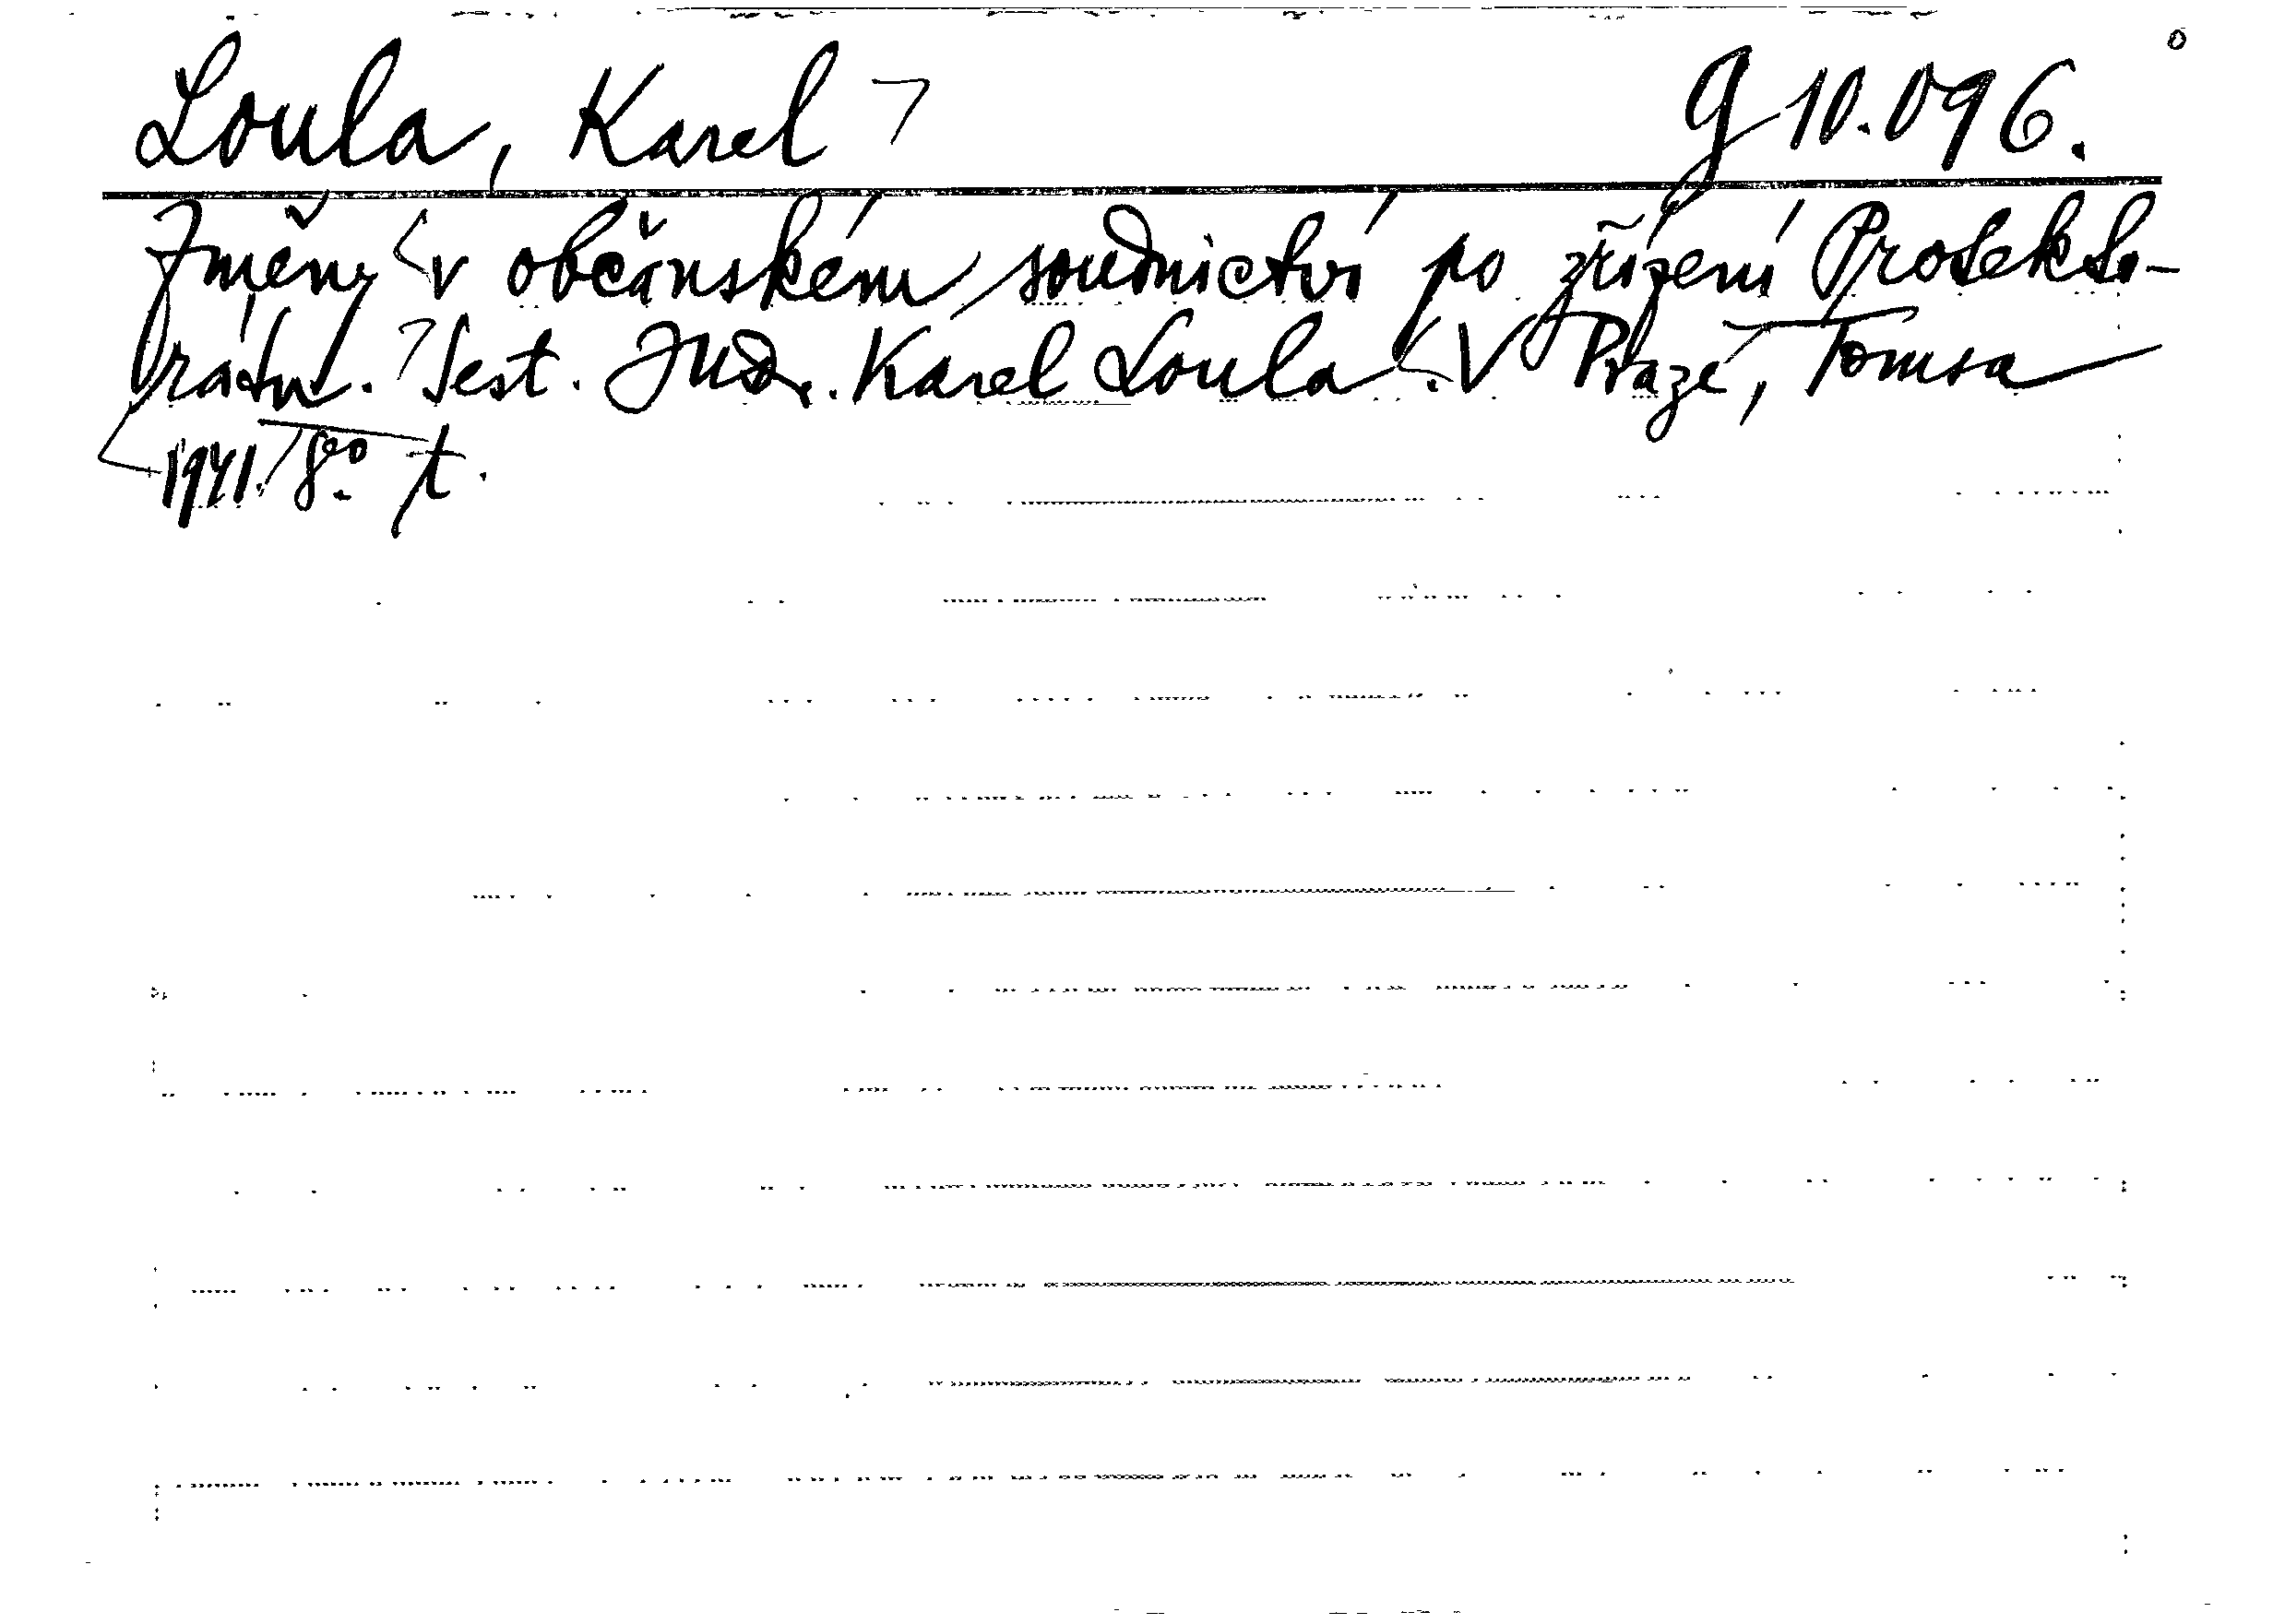 Loula, Karel g 10.096.
Změny v občanském soudnictví po zřízení Protekto-
rátu. Sest. JUDr. Karel Loula. V Praze, Tomsa
1941. 8° t.